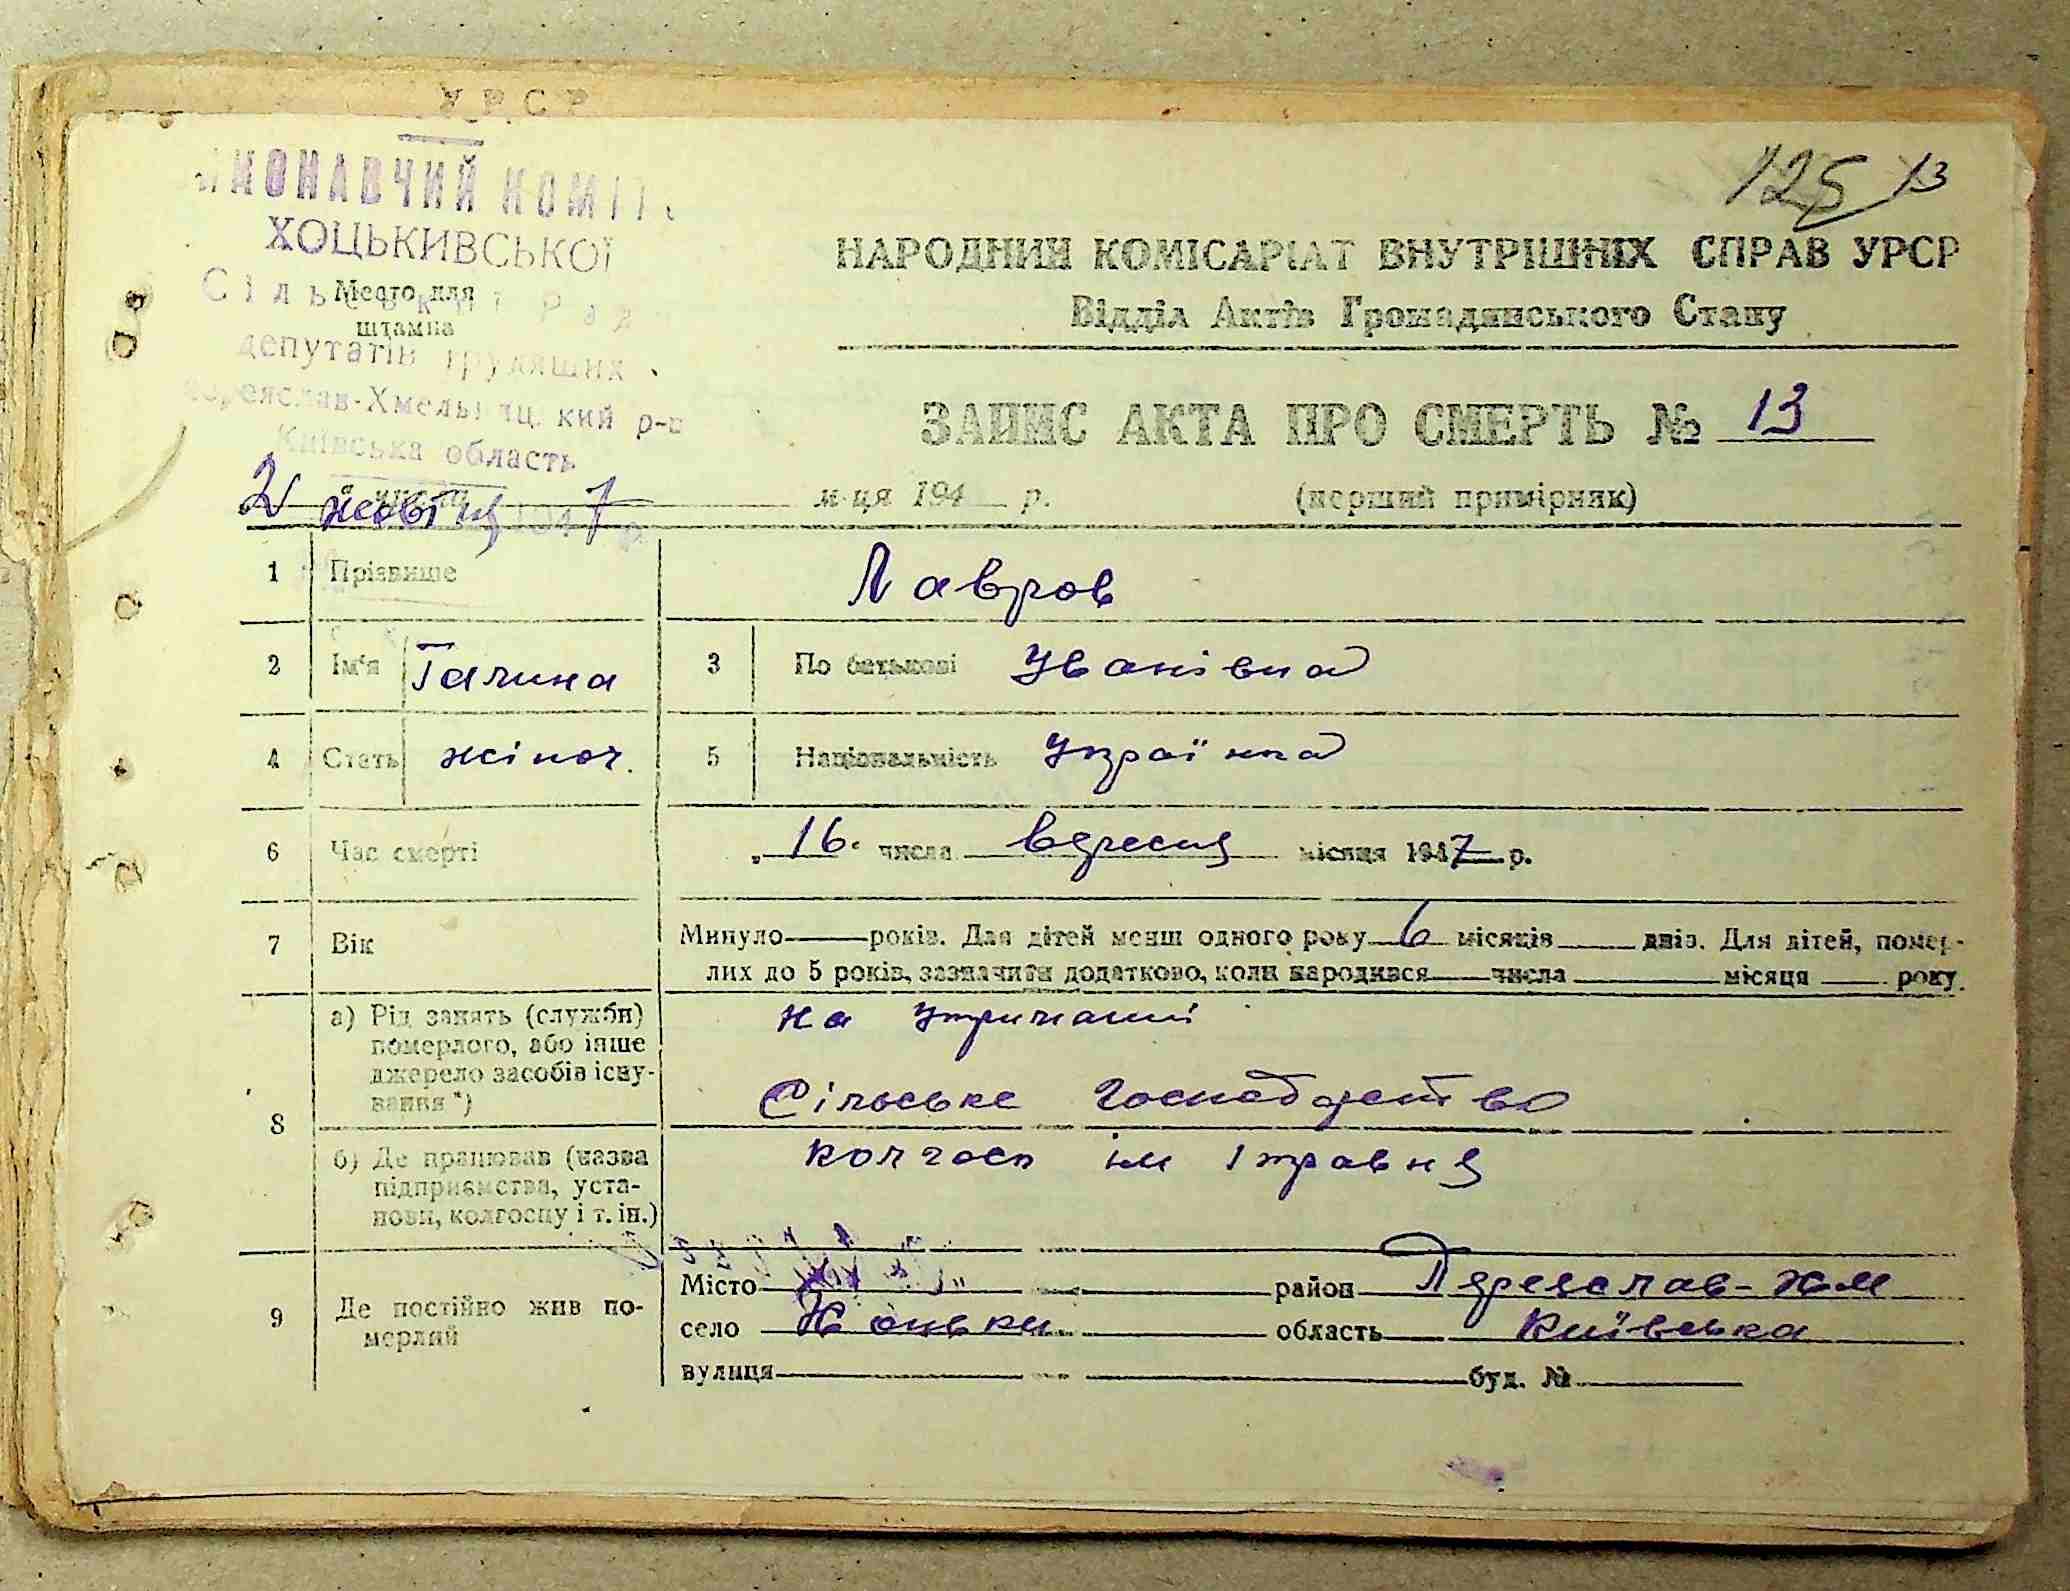 УРСР
ВИКОНАВЧИЙ КОМІТ
ХОЦЬКИВСЬКОЇ
Сільської Рад
Место для
штампа
депутатів трудящих
Переяслав-Хмельницький р-н
Київська область
2 жовтня 1947 р.
125 13
НАРОДНИЙ КОМІСАРІАТ ВНУТРІШНІХ СПРАВ УРСР
Відділ Актів Громадянського Стану
ЗАПИС АКТА ПРО СМЕРТЬ № 13
м-ця 194 р. (перший примірник)
1 Прізвище Лавров
2 Ім'я Галина 3 По батькові Іванівна
4 Стать жіноч. 5 Національність Українка
6 Час смерті „ 16 числа вересня місяця 1947 р.
7 Вік Минуло років. Для дітей менш одного року 6 місяців днів. Для дітей, помер-
лих до 5 років, зазначити додатково, коли народився числа місяця року.
8 а) Рід занять (служби)
померлого, або інше
джерело засобів існу-
вання *)
на утриманні
Сільське господарство
б) Де працював (назва
підприємства, уста-
нови, колгоспу і т. ін.)
колгосп ім 1 травня
9 Де постійно жив по-
мерлий
Місто район Переяслав-Хм
село Хоцьки область Київська
вулиця буд. №